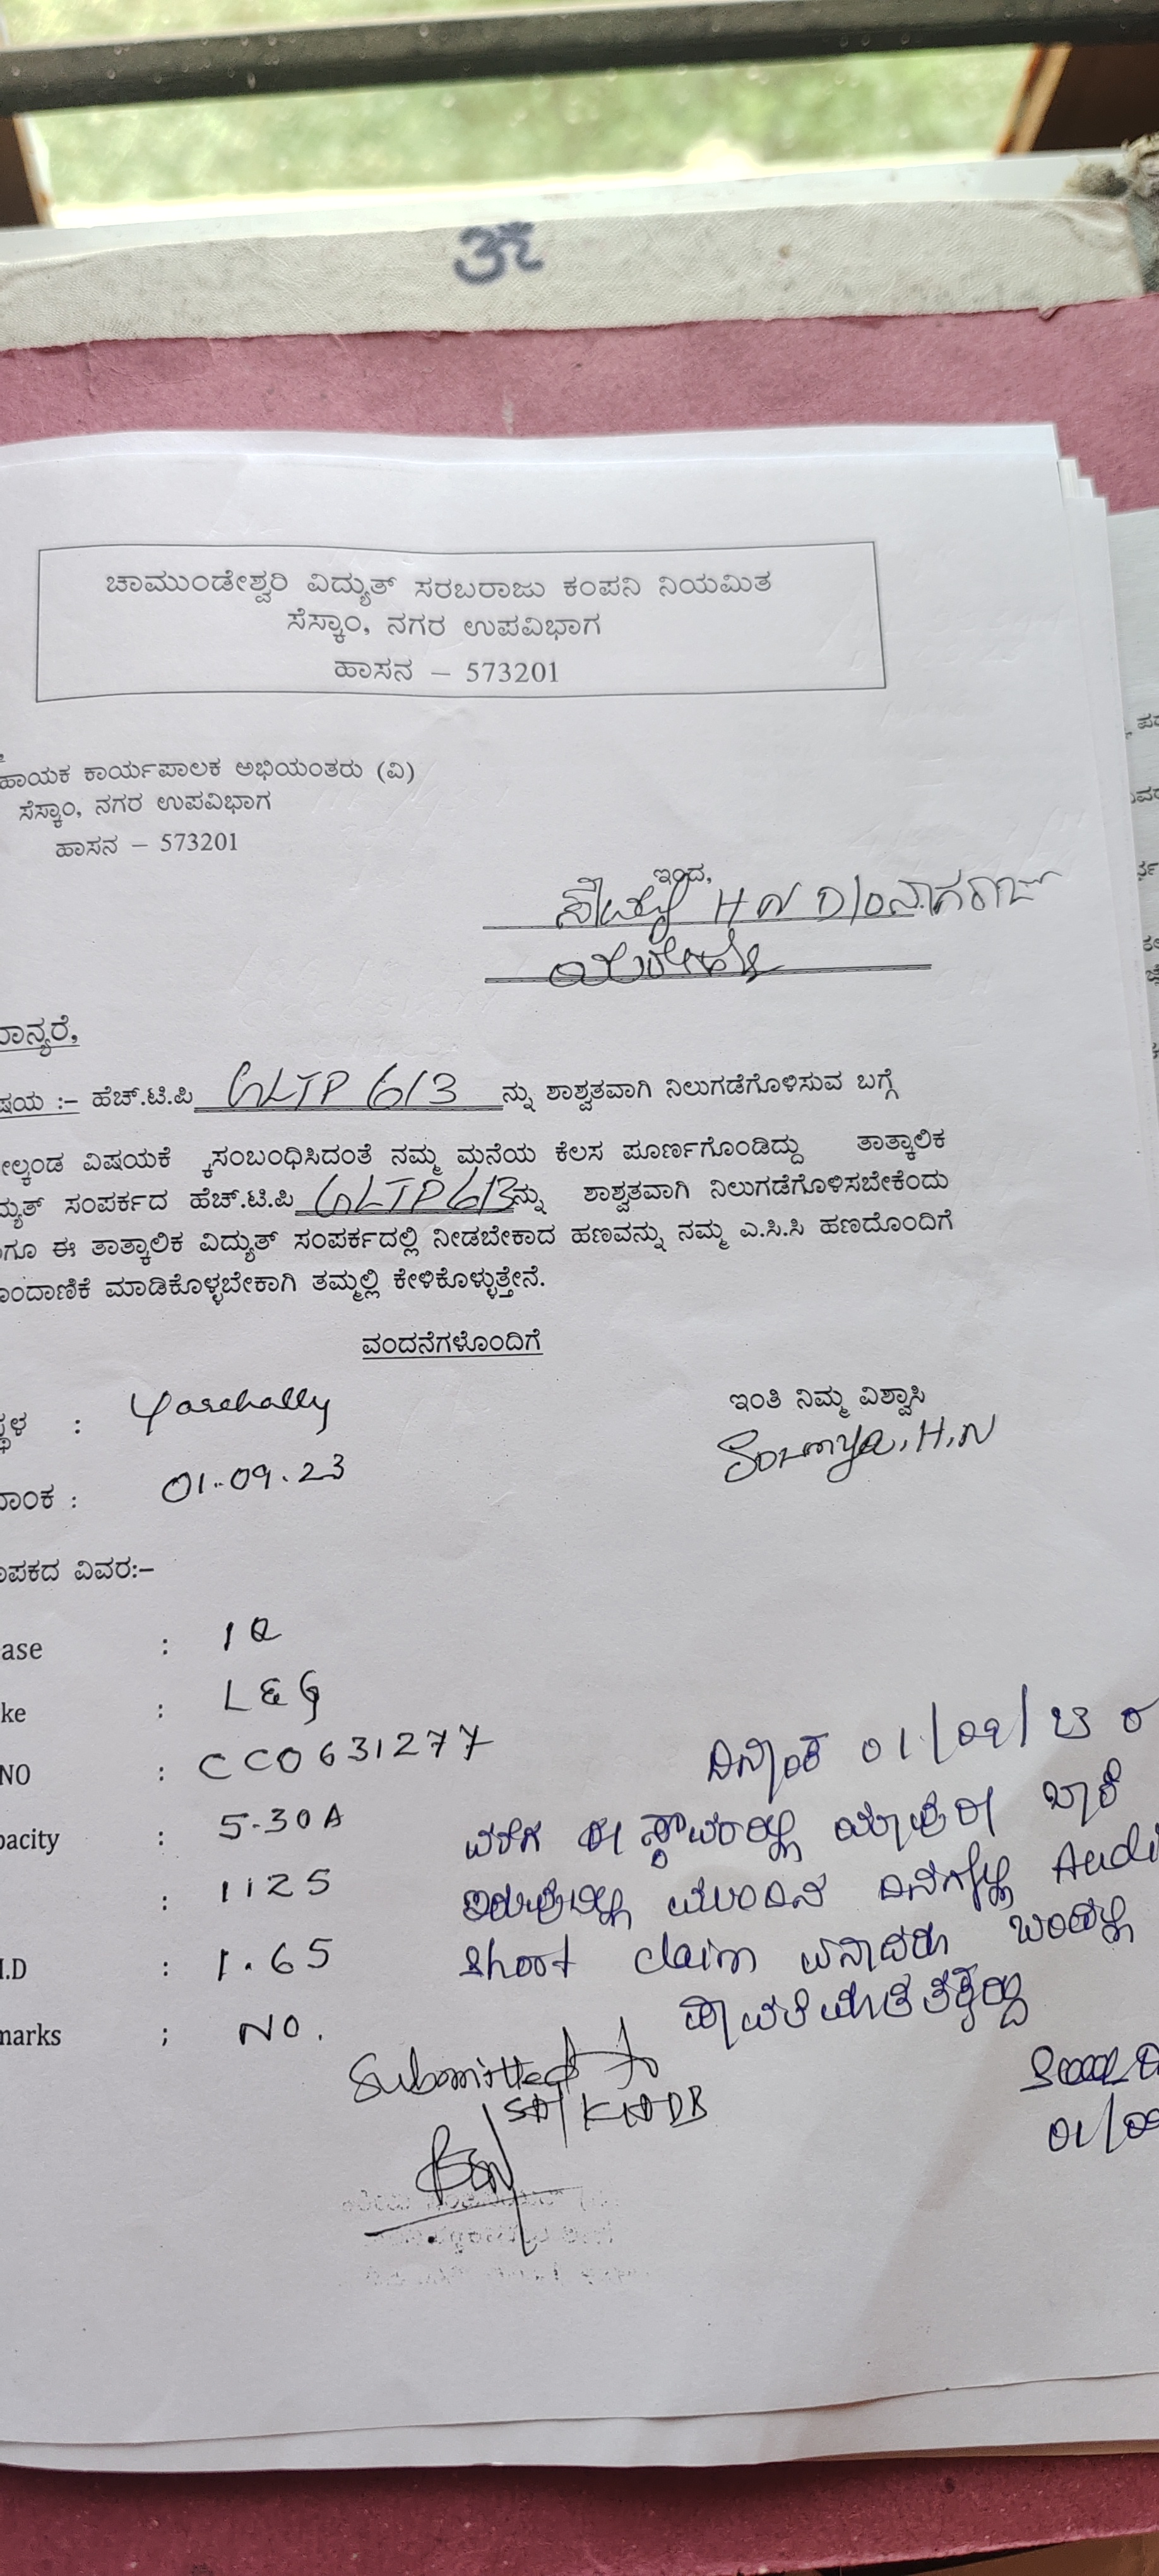 ಓಂ
ಚಾಮುಂಡೇಶ್ವರಿ ವಿದ್ಯುತ್ ಸರಬರಾಜು ಕಂಪನಿ ನಿಯಮಿತ
ಸೆಸ್ಕಾಂ, ನಗರ ಉಪವಿಭಾಗ
ಹಾಸನ – 573201
ಹಾಯಕ ಕಾರ್ಯಪಾಲಕ ಅಭಿಯಂತರು (ವಿ)
ಸೆಸ್ಕಾಂ, ನಗರ ಉಪವಿಭಾಗ
ಹಾಸನ – 573201
ಇಂದ,
ಸೌಮ್ಯ H N D/O ನಾಗರಾಜ್
ಾನ್ಯರೆ,
ಷಯ :– ಹೆಚ್.ಟಿ.ಪಿ GLTP 613 ನ್ನು ಶಾಶ್ವತವಾಗಿ ನಿಲುಗಡೆಗೊಳಿಸುವ ಬಗ್ಗೆ
ೇಲ್ಕಂಡ ವಿಷಯಕ್ಕೆ ಸಂಬಂಧಿಸಿದಂತೆ ನಮ್ಮ ಮನೆಯ ಕೆಲಸ ಪೂರ್ಣಗೊಂಡಿದ್ದು ತಾತ್ಕಾಲಿಕ
ದ್ಯುತ್ ಸಂಪರ್ಕದ ಹೆಚ್.ಟಿ.ಪಿ GLTP 613 ನ್ನು ಶಾಶ್ವತವಾಗಿ ನಿಲುಗಡೆಗೊಳಿಸಬೇಕೆಂದು
ಾಗೂ ಈ ತಾತ್ಕಾಲಿಕ ವಿದ್ಯುತ್ ಸಂಪರ್ಕದಲ್ಲಿ ನೀಡಬೇಕಾದ ಹಣವನ್ನು ನಮ್ಮ ಎ.ಸಿ.ಸಿ ಹಣದೊಂದಿಗೆ
ೊಂದಾಣಿಕೆ ಮಾಡಿಕೊಳ್ಳಬೇಕಾಗಿ ತಮ್ಮಲ್ಲಿ ಕೇಳಿಕೊಳ್ಳುತ್ತೇನೆ.
ವಂದನೆಗಳೊಂದಿಗೆ
ಇಂತಿ ನಿಮ್ಮ ವಿಶ್ವಾಸಿ
ಸ್ಥಳ : Yarehally
Sowmya.H.N
ನಾಂಕ : 01.09.23
ಾಪಕದ ವಿವರ:–
ase : 1Q
ke : L&G
NO : CC0631277
pacity : 5-30A
: 1125
I.D : 1.65
marks ; NO.
ದಿನಾಂಕ 01/09/23 ರ
ವರೆಗೆ ಈ ಸ್ಥಾವರದಲ್ಲಿ ಯಾವುದೇ ಬಾಕಿ
ಇರುವುದಿಲ್ಲ ಮುಂದಿನ ದಿನಗಳಲ್ಲಿ Audi
short claim ಏನಾದರೂ ಬಂದಲ್ಲಿ
Submitted to